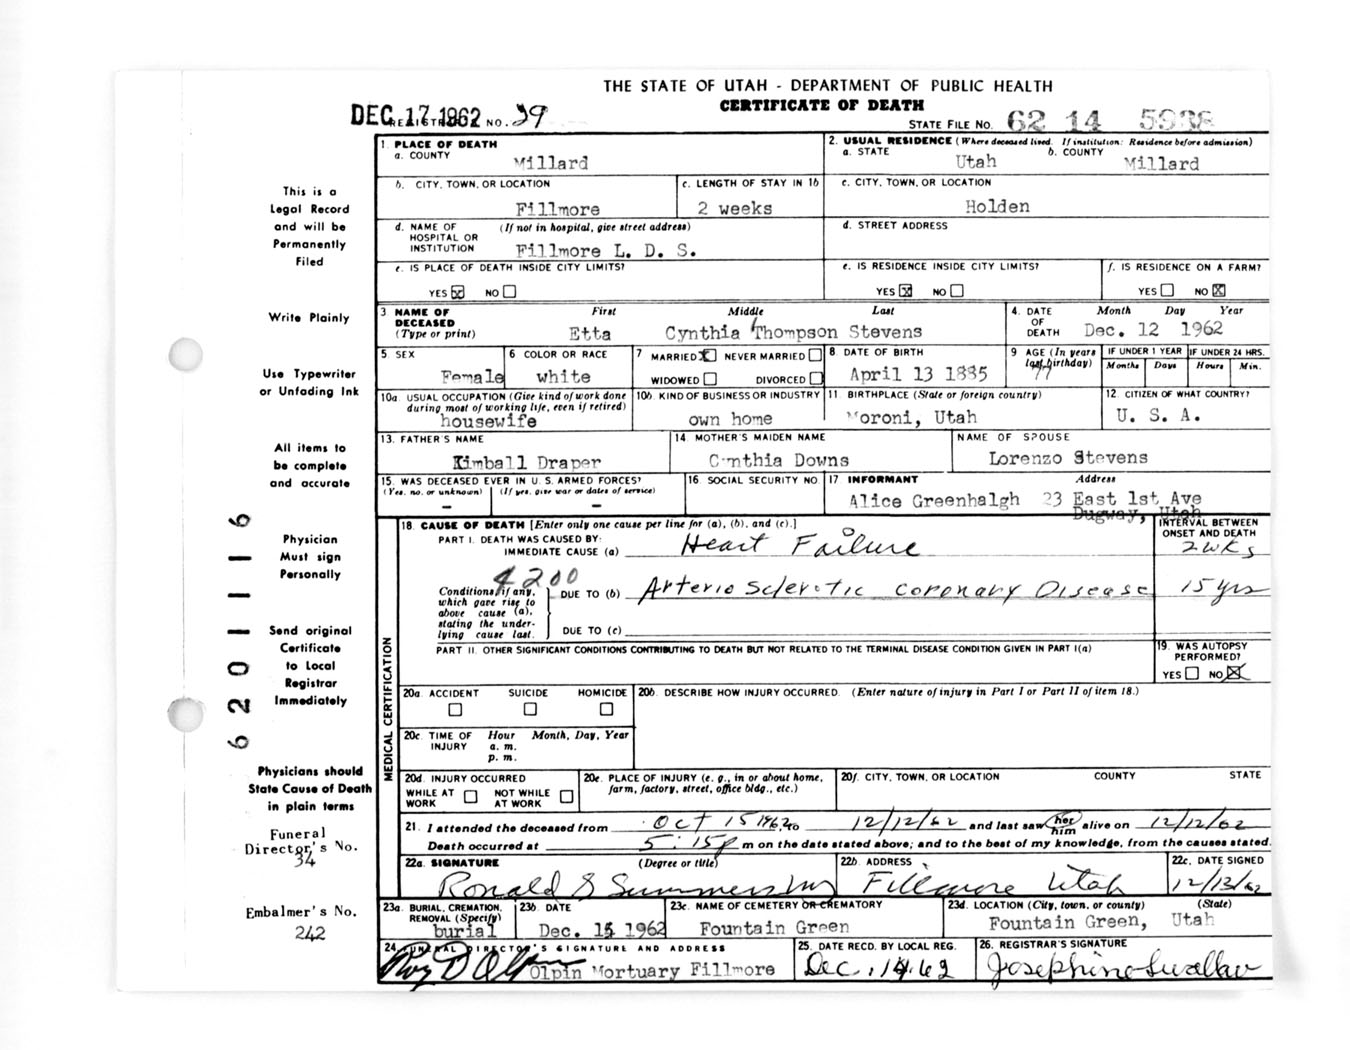 THE STATE OF UTAH - DEPARTMENT OF PUBLIC HEALTH
CERTIFICATE OF DEATH
DEC 17 1962 REGISTRAR'S NO. 29
STATE FILE NO. 62 14 5938
This is a
Legal Record
and will be
Permanently
Filed
Write Plainly
Use Typewriter
or Unfading Ink
All items to
be complete
and accurate
Physician
Must sign
Personally
Send original
Certificate
to Local
Registrar
Immediately
Physicians should
State Cause of Death
in plain terms
Funeral
Director's No.
34
Embalmer's No.
242
1. PLACE OF DEATH
a. COUNTY Millard
2. USUAL RESIDENCE (Where deceased lived. If institution: Residence before admission)
a. STATE Utah b. COUNTY Millard
b. CITY, TOWN, OR LOCATION Fillmore
c. LENGTH OF STAY IN 1b 2 weeks
c. CITY, TOWN, OR LOCATION Holden
d. NAME OF HOSPITAL OR INSTITUTION (If not in hospital, give street address) Fillmore L. D. S.
d. STREET ADDRESS
e. IS PLACE OF DEATH INSIDE CITY LIMITS? YES ☒ NO ☐
e. IS RESIDENCE INSIDE CITY LIMITS? YES ☒ NO ☐
f. IS RESIDENCE ON A FARM? YES ☐ NO ☒
3. NAME OF DECEASED (Type or print) First Middle Last
Etta Cynthia Thompson Stevens
4. DATE OF DEATH Month Day Year
Dec. 12 1962
5. SEX Female
6 COLOR OR RACE white
7 MARRIED ☒ NEVER MARRIED ☐
WIDOWED ☐ DIVORCED ☐
8. DATE OF BIRTH April 13 1885
9 AGE (In years last birthday) 77
IF UNDER 1 YEAR Months Days
IF UNDER 24 HRS. Hours Min.
10a. USUAL OCCUPATION (Give kind of work done during most of working life, even if retired) housewife
10b. KIND OF BUSINESS OR INDUSTRY own home
11. BIRTHPLACE (State or foreign country) Moroni, Utah
12 CITIZEN OF WHAT COUNTRY? U. S. A.
13. FATHER'S NAME Kimball Draper
14 MOTHER'S MAIDEN NAME Cynthia Downs
NAME OF SPOUSE Lorenzo Stevens
15. WAS DECEASED EVER IN U.S. ARMED FORCES? (Yes, no, or unknown) - (If yes, give war or dates of service) -
16. SOCIAL SECURITY NO.
17 INFORMANT Address
Alice Greenhalgh 23 East 1st Ave
Dugway, Utah
6201116
MEDICAL CERTIFICATION
18. CAUSE OF DEATH [Enter only one cause per line for (a), (b), and (c).]
INTERVAL BETWEEN ONSET AND DEATH
PART I. DEATH WAS CAUSED BY:
IMMEDIATE CAUSE (a) Heart Failure 2 wks
4200
Conditions, if any, which gave rise to above cause (a), stating the underlying cause last.
DUE TO (b) Arterio Sclerotic Coronary Disease 15 yrs
DUE TO (c)
PART II. OTHER SIGNIFICANT CONDITIONS CONTRIBUTING TO DEATH BUT NOT RELATED TO THE TERMINAL DISEASE CONDITION GIVEN IN PART I(a)
19. WAS AUTOPSY PERFORMED? YES ☐ NO ☒
20a. ACCIDENT ☐ SUICIDE ☐ HOMICIDE ☐
20b. DESCRIBE HOW INJURY OCCURRED. (Enter nature of injury in Part I or Part II of item 18.)
20c. TIME OF INJURY Hour a. m. p. m. Month, Day, Year
20d. INJURY OCCURRED WHILE AT WORK ☐ NOT WHILE AT WORK ☐
20e. PLACE OF INJURY (e. g., in or about home, farm, factory, street, office bldg., etc.)
20f. CITY, TOWN, OR LOCATION COUNTY STATE
21. I attended the deceased from Oct 15 1962, to 12/12/62 and last saw her him alive on 12/12/62
Death occurred at 5:15 p m on the date stated above; and to the best of my knowledge, from the causes stated.
22a. SIGNATURE (Degree or title) Ronald S Summers MD
22b. ADDRESS Fillmore Utah
22c. DATE SIGNED 12/13/62
23a. BURIAL, CREMATION, REMOVAL (Specify) burial
23b. DATE Dec. 15 1962
23c. NAME OF CEMETERY OR CREMATORY Fountain Green
23d. LOCATION (City, town, or county) (State) Fountain Green, Utah
24. FUNERAL DIRECTOR'S SIGNATURE AND ADDRESS
Roy D Olpin Olpin Mortuary Fillmore
25. DATE RECD. BY LOCAL REG. Dec. 14, 62
26. REGISTRAR'S SIGNATURE Josephine Swallow